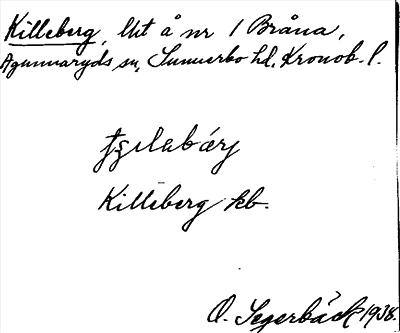 Killeberg, lht å nr 1 Bråna,
Agunnaryds sn, Sunnerbo hd, Kronob. l.
Killeberg kb.
O. Segerbäck 1938.